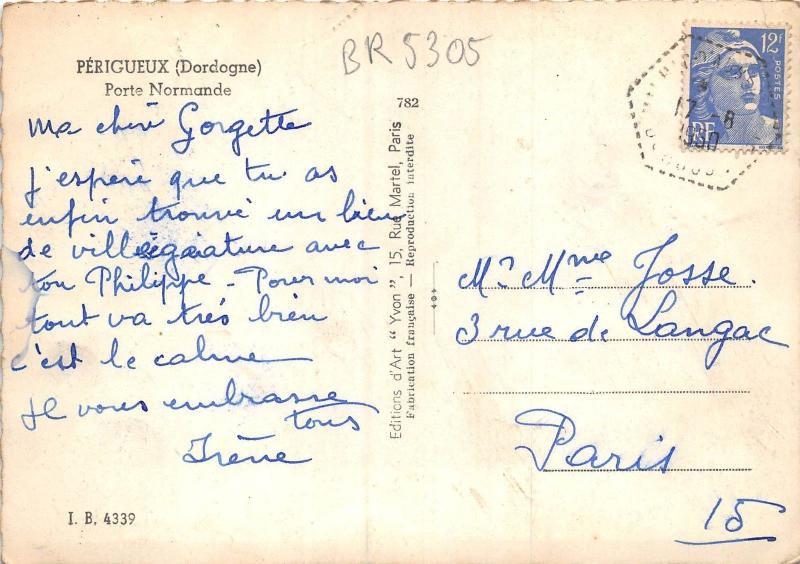 PÉRIGUEUX (Dordogne)
Porte Normande
BR 5305
Ma chère Gorgette
J'espère que tu as
enfin trouvé un lieu
de villégiature avec
ton Philippe - Pour moi
tout va très bien
c'est le calme
Je vous embrasse
tous
Irène
I. B. 4339
782
Editions d'Art "Yvon", 15, Rue Martel, Paris
Fabrication française — Reproduction interdite
12F
POSTES
RF
17 -8
1950
Mr Mme Josse.
3 rue de Langac
Paris
15